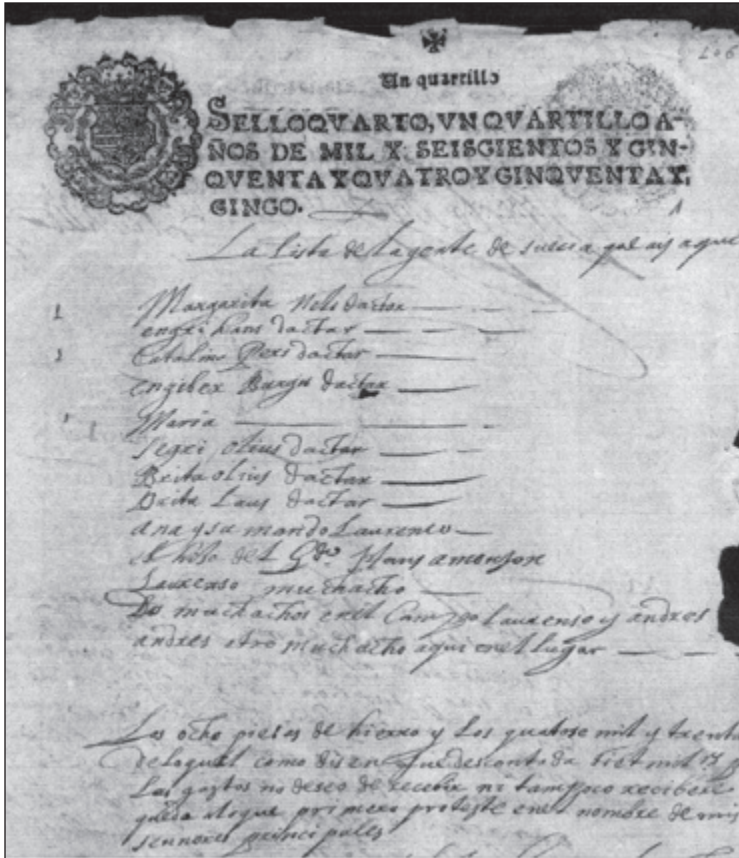 206
Un quartillo
SELLO QVARTO, VN QVARTILLO A-
ÑOS DE MIL Y SEISCIENTOS Y CIN-
QVENTA Y QVATRO Y CINQVENTA Y
CINCO.
La lista de la gente de suecia que ay aqui
Margarita Nels dactar
engri hans dactar
Catalina Pers dactar
engiber dactar
Maria
segri olius dactar
Brita olius dactar
Brita Laus dactar
ana y su marido Laurenso
el hijo del Gdor Hans amonson
Laurenso muchacho
Dos muchachos en el Campo Laurenso y andres
andres otro muchacho aqui en el lugar
Los ocho piesas de hierro y Los quatose mil y trenta
de loqual como disen que descontada siet mil
Los gastos no deseo de recebir ni tampoco recibere
queda aloque primero proteste en el nombre de mis
sennores principales